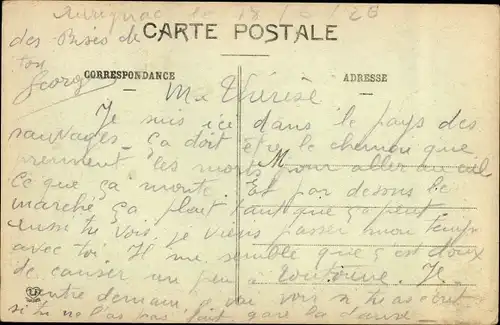 Aurignac le 18/6/26
des Bises de CARTE POSTALE
ton
Georg CORRESPONDANCE ADRESSE
Ma Thérèse
Je suis ici dans le pays des
sauvages. Ça doit être le chemin que
prennent les morts pour aller au ciel
M
Ce que ça monte. Et par dessus le
marché ça pleut tant que ça peut.
aussi tu vois je viens passer mon temps
avec toi. Il me semble que c'est doux
de causer un peu a Je
rentre demain a
si tu n'as pas fait gare la danse